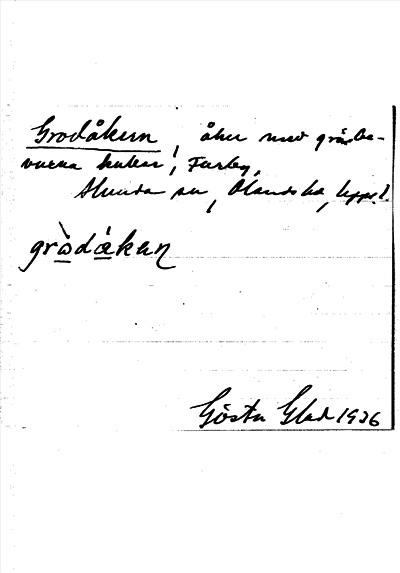 Grodåkern, åker med gräsbe-
vuxna kullar, Farby,
Alunda sn, Olands hd, Uppl.
gròdákan
Gösta Glad 1936